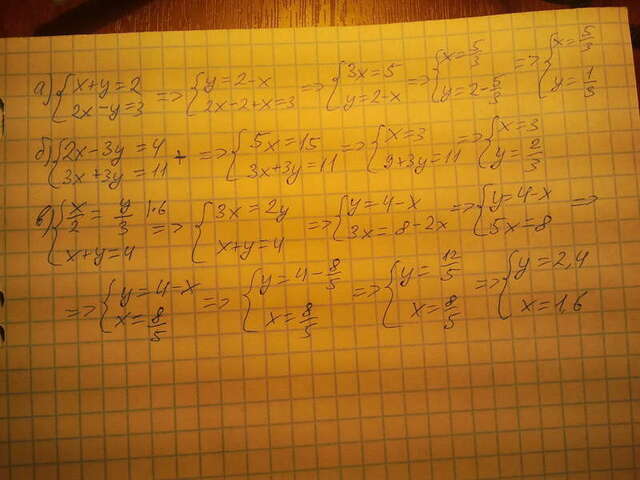 а) { x+y=2 2x-y=3 => { y=2-x 2x-2+x=3 => { 3x=5 y=2-x => { x=5/3 y=2-5/3 => { x=5/3 y=1/3
б) { 2x-3y=4 3x+3y=11 + => { 5x=15 3x+3y=11 => { x=3 9+3y=11 => { x=3 y=2/3
в) { x/2=y/3 |·6 x+y=4 => { 3x=2y x+y=4 => { y=4-x 3x=8-2x => { y=4-x 5x=8 =>
=> { y=4-x x=8/5 => { y=4-8/5 x=8/5 => { y=12/5 x=8/5 => { y=2,4 x=1,6